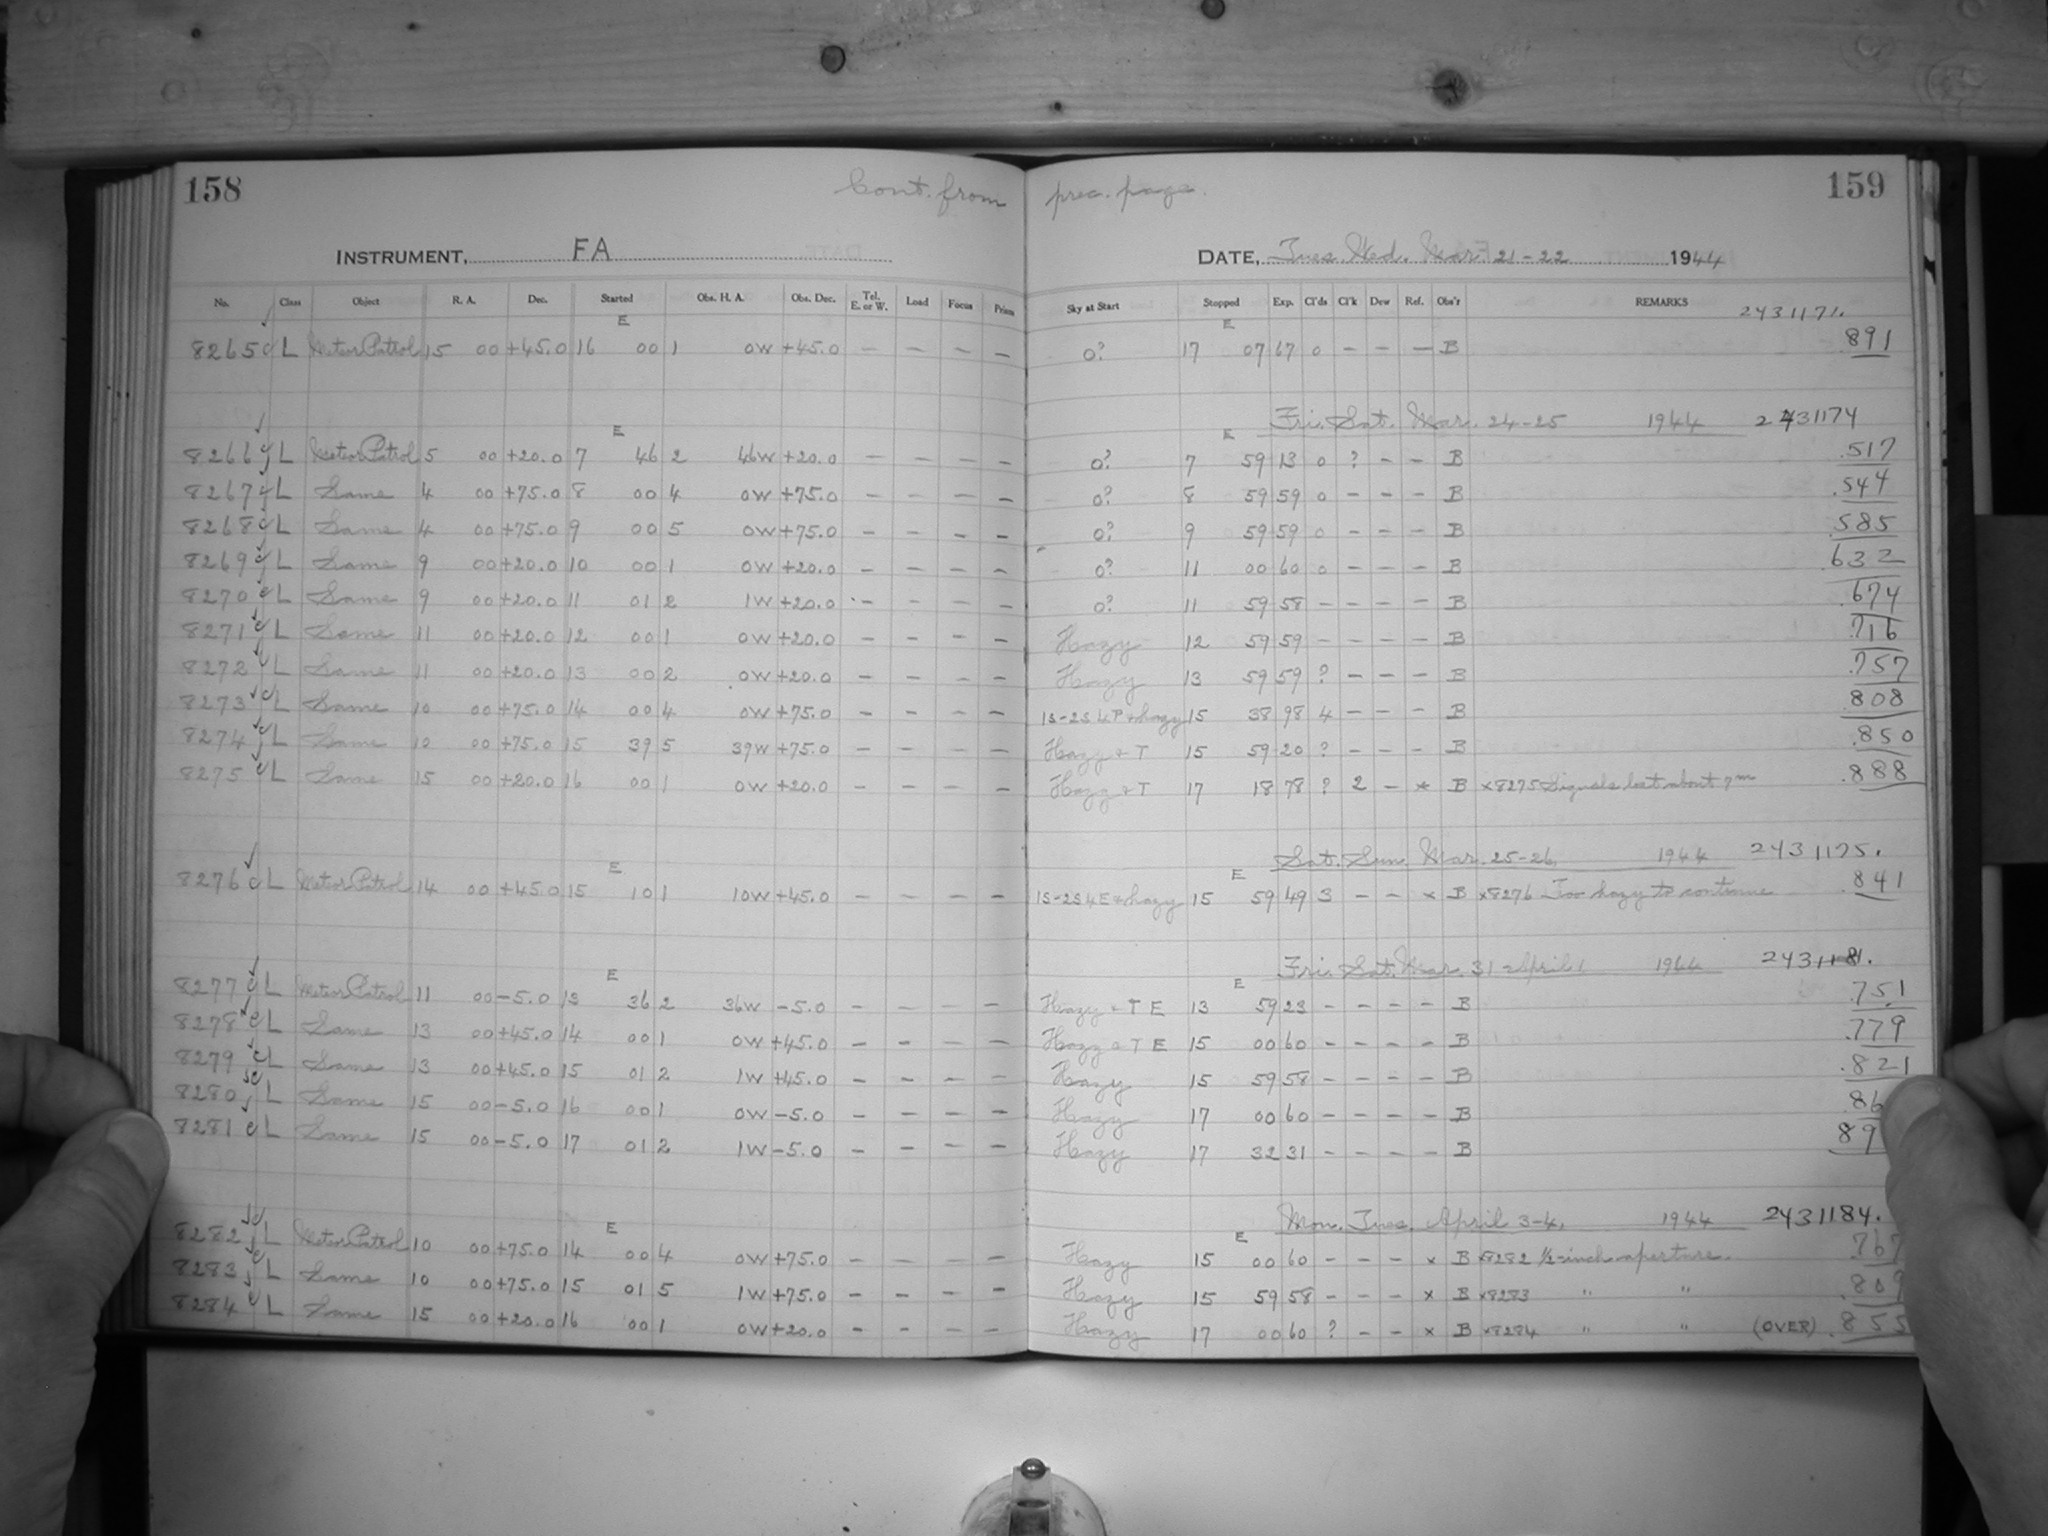 158 Cont. from prec. page. 159
INSTRUMENT, FA DATE, Tues. Wed. Mar. 21-22 1944
No. Class Object R. A. Dec. Started Obs. H. A. Obs. Dec. Tel. E. or W. Load Focus Prism Sky at Start Stopped Exp. Cl'ds Cl'k Dew Ref. Obs'r REMARKS 2431171.
E E
8265 c L Meteor Patrol 15 00 +45.0 16 00 1 0W +45.0 – – – – 0? 17 07 67 0 – – – B .891
Fri. Sat. Mar. 24-25 1944 2431174
E E
8266 c L Meteor Patrol 5 00 +20.0 7 46 2 46W +20.0 – – – – 0? 7 59 13 0 ? – – B .517
8267 c L Same 4 00 +75.0 8 00 4 0W +75.0 – – – – 0? 8 59 59 0 – – – B .544
8268 c L Same 4 00 +75.0 9 00 5 0W +75.0 – – – – 0? 9 59 59 0 – – – B .585
8269 c L Same 9 00 +20.0 10 00 1 0W +20.0 – – – – 0? 11 00 60 0 – – – B .632
8270 c L Same 9 00 +20.0 11 01 2 1W +20.0 – – – – 0? 11 59 58 – – – – B .674
8271 c L Same 11 00 +20.0 12 00 1 0W +20.0 – – – – Hazy 12 59 59 – – – – B .716
8272 c L Same 11 00 +20.0 13 00 2 0W +20.0 – – – – Hazy 13 59 59 ? – – – B .757
8273 c L Same 10 00 +75.0 14 00 4 0W +75.0 – – – – 1S-2S4P+hazy 15 38 98 4 – – – B .808
8274 c L Same 10 00 +75.0 15 39 5 39W +75.0 – – – – Hazy + T 15 59 20 ? – – – B .850
8275 c L Same 15 00 +20.0 16 00 1 0W +20.0 – – – – Hazy + T 17 18 78 ? 2 – × B ×8275 Signals lost about 7m .888
Sat. Sun. Mar. 25-26, 1944 2431175.
E E
8276 c L Meteor Patrol 14 00 +45.0 15 10 1 10W +45.0 – – – – 1S-2S4E+hazy 15 59 49 3 – – × B ×8276 Too hazy to continue .841
Fri. Sat. Mar. 31-April 1 1944 2431181.
E E
8277 c L Meteor Patrol 11 00 -5.0 13 36 2 36W -5.0 – – – – Hazy + T E 13 59 23 – – – – B .751
8278 c L Same 13 00 +45.0 14 00 1 0W +45.0 – – – – Hazy + T E 15 00 60 – – – – B .779
8279 c L Same 13 00 +45.0 15 01 2 1W +45.0 – – – – Hazy 15 59 58 – – – – B .821
8280 c L Same 15 00 -5.0 16 00 1 0W -5.0 – – – – Hazy 17 00 60 – – – – B .86
8281 c L Same 15 00 -5.0 17 01 2 1W -5.0 – – – – Hazy 17 32 31 – – – – B 89
Mon. Tues. April 3-4, 1944 2431184.
E E
8282 c L Meteor Patrol 10 00 +75.0 14 00 4 0W +75.0 – – – – Hazy 15 00 60 – – – × B ×8282 1/2-inch aperture. .767
8283 c L Same 10 00 +75.0 15 01 5 1W +75.0 – – – – Hazy 15 59 58 – – – × B ×8283 " " .809
8284 c L Same 15 00 +20.0 16 00 1 0W +20.0 – – – – Hazy 17 00 60 ? – – × B ×8284 " " (OVER) .855